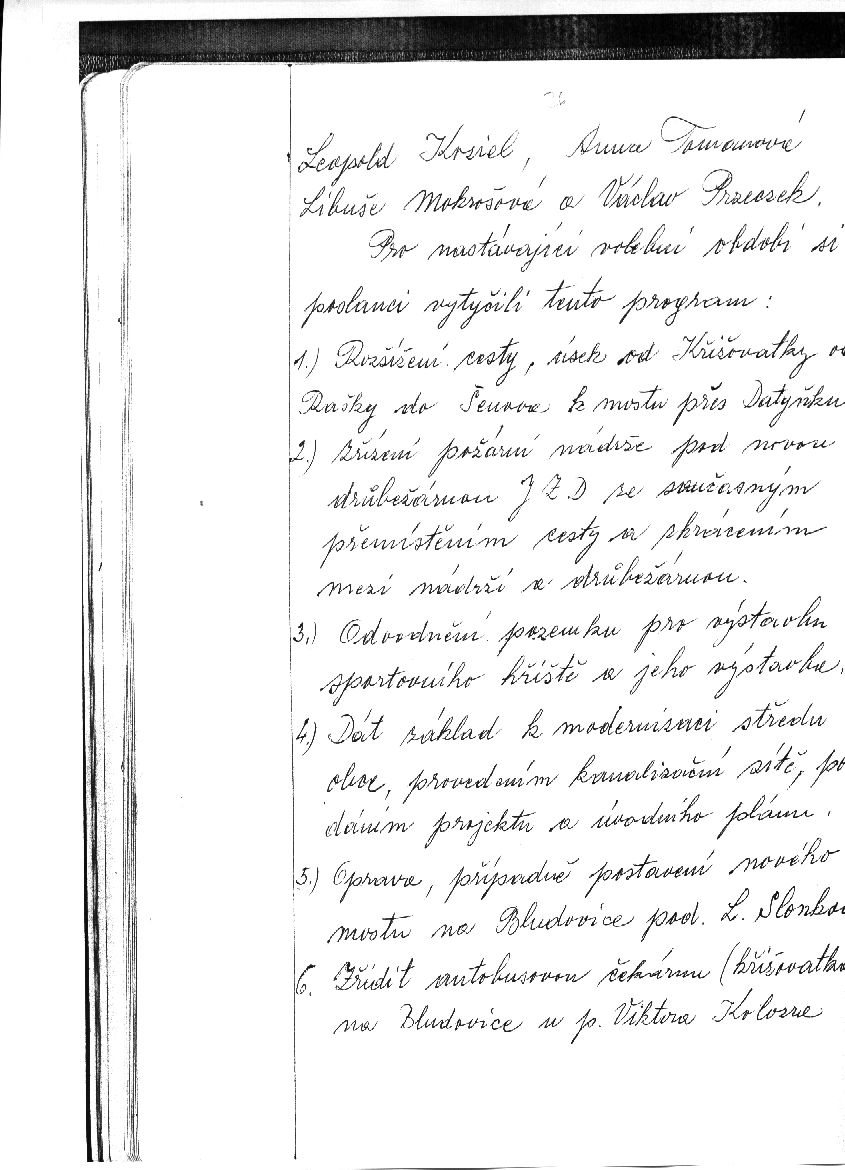 76
Leopold Kosiel, Anna Tomanová
Libuše Mokrošová a Václav Przeczek.
Pro nastávající volební období si
poslanci vytyčili tento program:
1.) Rozšíření cesty, úsek od Křižovatky od
Rašky do Šenova k mostu přes Datyňku
2.) Zřízení požární nádrže pod novou
drůbežárnou JZD se současným
přemístěním cesty a zkrácením
mezi nádrží a drůbežárnou.
3.) Odvodnění pozemku pro výstavbu
sportovního hřiště a jeho výstavba.
4.) Dát základ k modernisaci středu
obce, provedením kanalizační sítě, po
dáním projektu a úvodního plánu.
5.) Oprava, případně postavení nového
mostu na Bludovice pod. L. Slonkou
6. Zřídit autobusovou čekárnu (křižovatka
na Bludovice u p. Viktora Kolosze